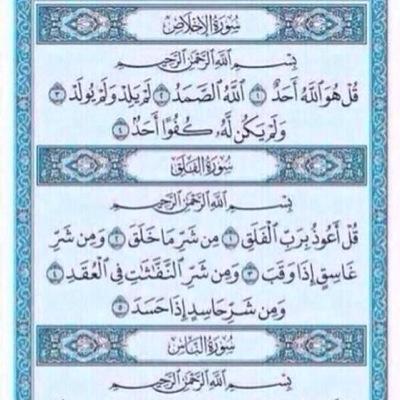 سُورَةُ الإِخْلَاصِ
بِسْمِ اللَّهِ الرَّحْمَٰنِ الرَّحِيمِ
قُلْ هُوَ اللَّهُ أَحَدٌ ١ اللَّهُ الصَّمَدُ ٢ لَمْ يَلِدْ وَلَمْ يُولَدْ ٣
وَلَمْ يَكُن لَّهُ كُفُوًا أَحَدٌ ٤
سُورَةُ الفَلَقِ
بِسْمِ اللَّهِ الرَّحْمَٰنِ الرَّحِيمِ
قُلْ أَعُوذُ بِرَبِّ الْفَلَقِ ١ مِن شَرِّ مَا خَلَقَ ٢ وَمِن شَرِّ
غَاسِقٍ إِذَا وَقَبَ ٣ وَمِن شَرِّ النَّفَّاثَاتِ فِي الْعُقَدِ ٤
وَمِن شَرِّ حَاسِدٍ إِذَا حَسَدَ ٥
سُورَةُ النَّاسِ
بِسْمِ اللَّهِ الرَّحْمَٰنِ الرَّحِيمِ